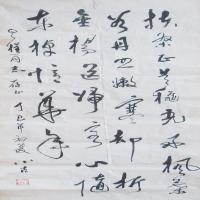 扶桑正是秋光好枫叶
如丹照嫩寒却折
垂杨送归客心随
东棹忆华年
同志存正 丁巳年初夏